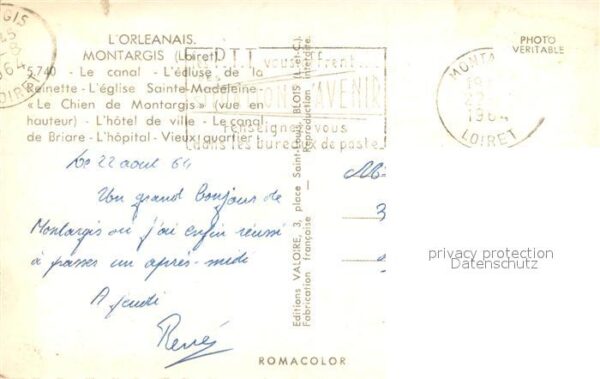 L'ORLEANAIS.
MONTARGIS (Loiret)
5740 - Le canal - L'écluse de la
Reinette - L'église Sainte-Madeleine -
« Le Chien de Montargis » (vue en
hauteur) - L'hôtel de ville - Le canal
de Briare - L'hôpital - Vieux quartier.
PTT vous offrent
AVENIR
renseignez vous
dans les bureaux de poste
PHOTO
VERITABLE
1964
LOIRET
MONTA
22
1964
LOIRET
Le 22 aout 64
Un grand bonjour de
Montargis où j'ai enfin réussi
à passer un après-midi
A jeudi
René
Editions VALOIRE, 3, place Saint-Louis, BLOIS (L.-et-C.)
Fabrication française - Reproduction interdite.
3
privacy protection
Datenschutz
ROMACOLOR